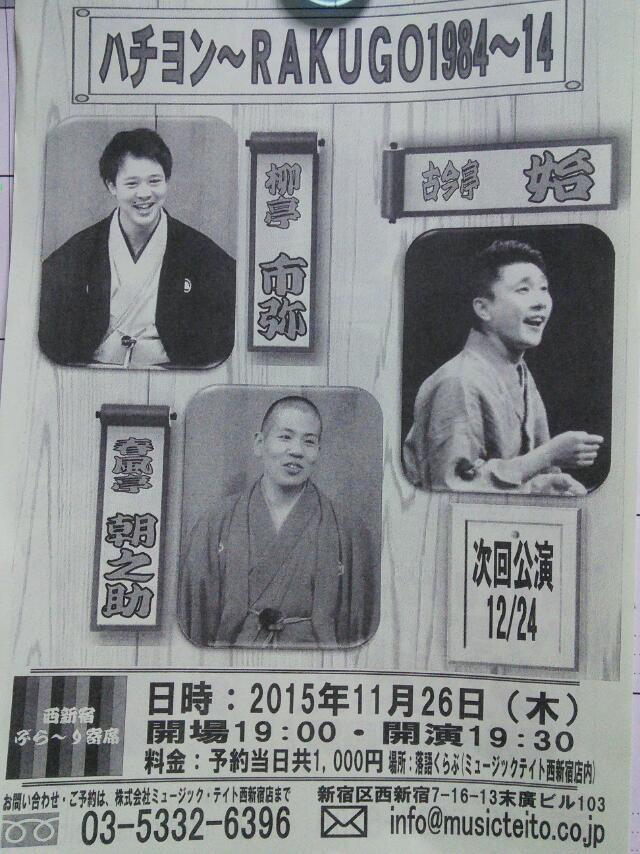 ハチヨン～RAKUGO1984～14
柳亭 市弥
古今亭 始
春風亭 朝之助
次回公演
12/24
西新宿
ぶら～り寄席
日時：2015年11月26日（木）
開場19:00・開演19:30
料金：予約当日共1,000円 場所：落語くらぶ(ミュージックテイト西新宿店内)
お問い合わせ・ご予約は、株式会社ミュージック・テイト西新宿店まで
03-5332-6396
新宿区西新宿7-16-13末廣ビル103
info@musicteito.co.jp